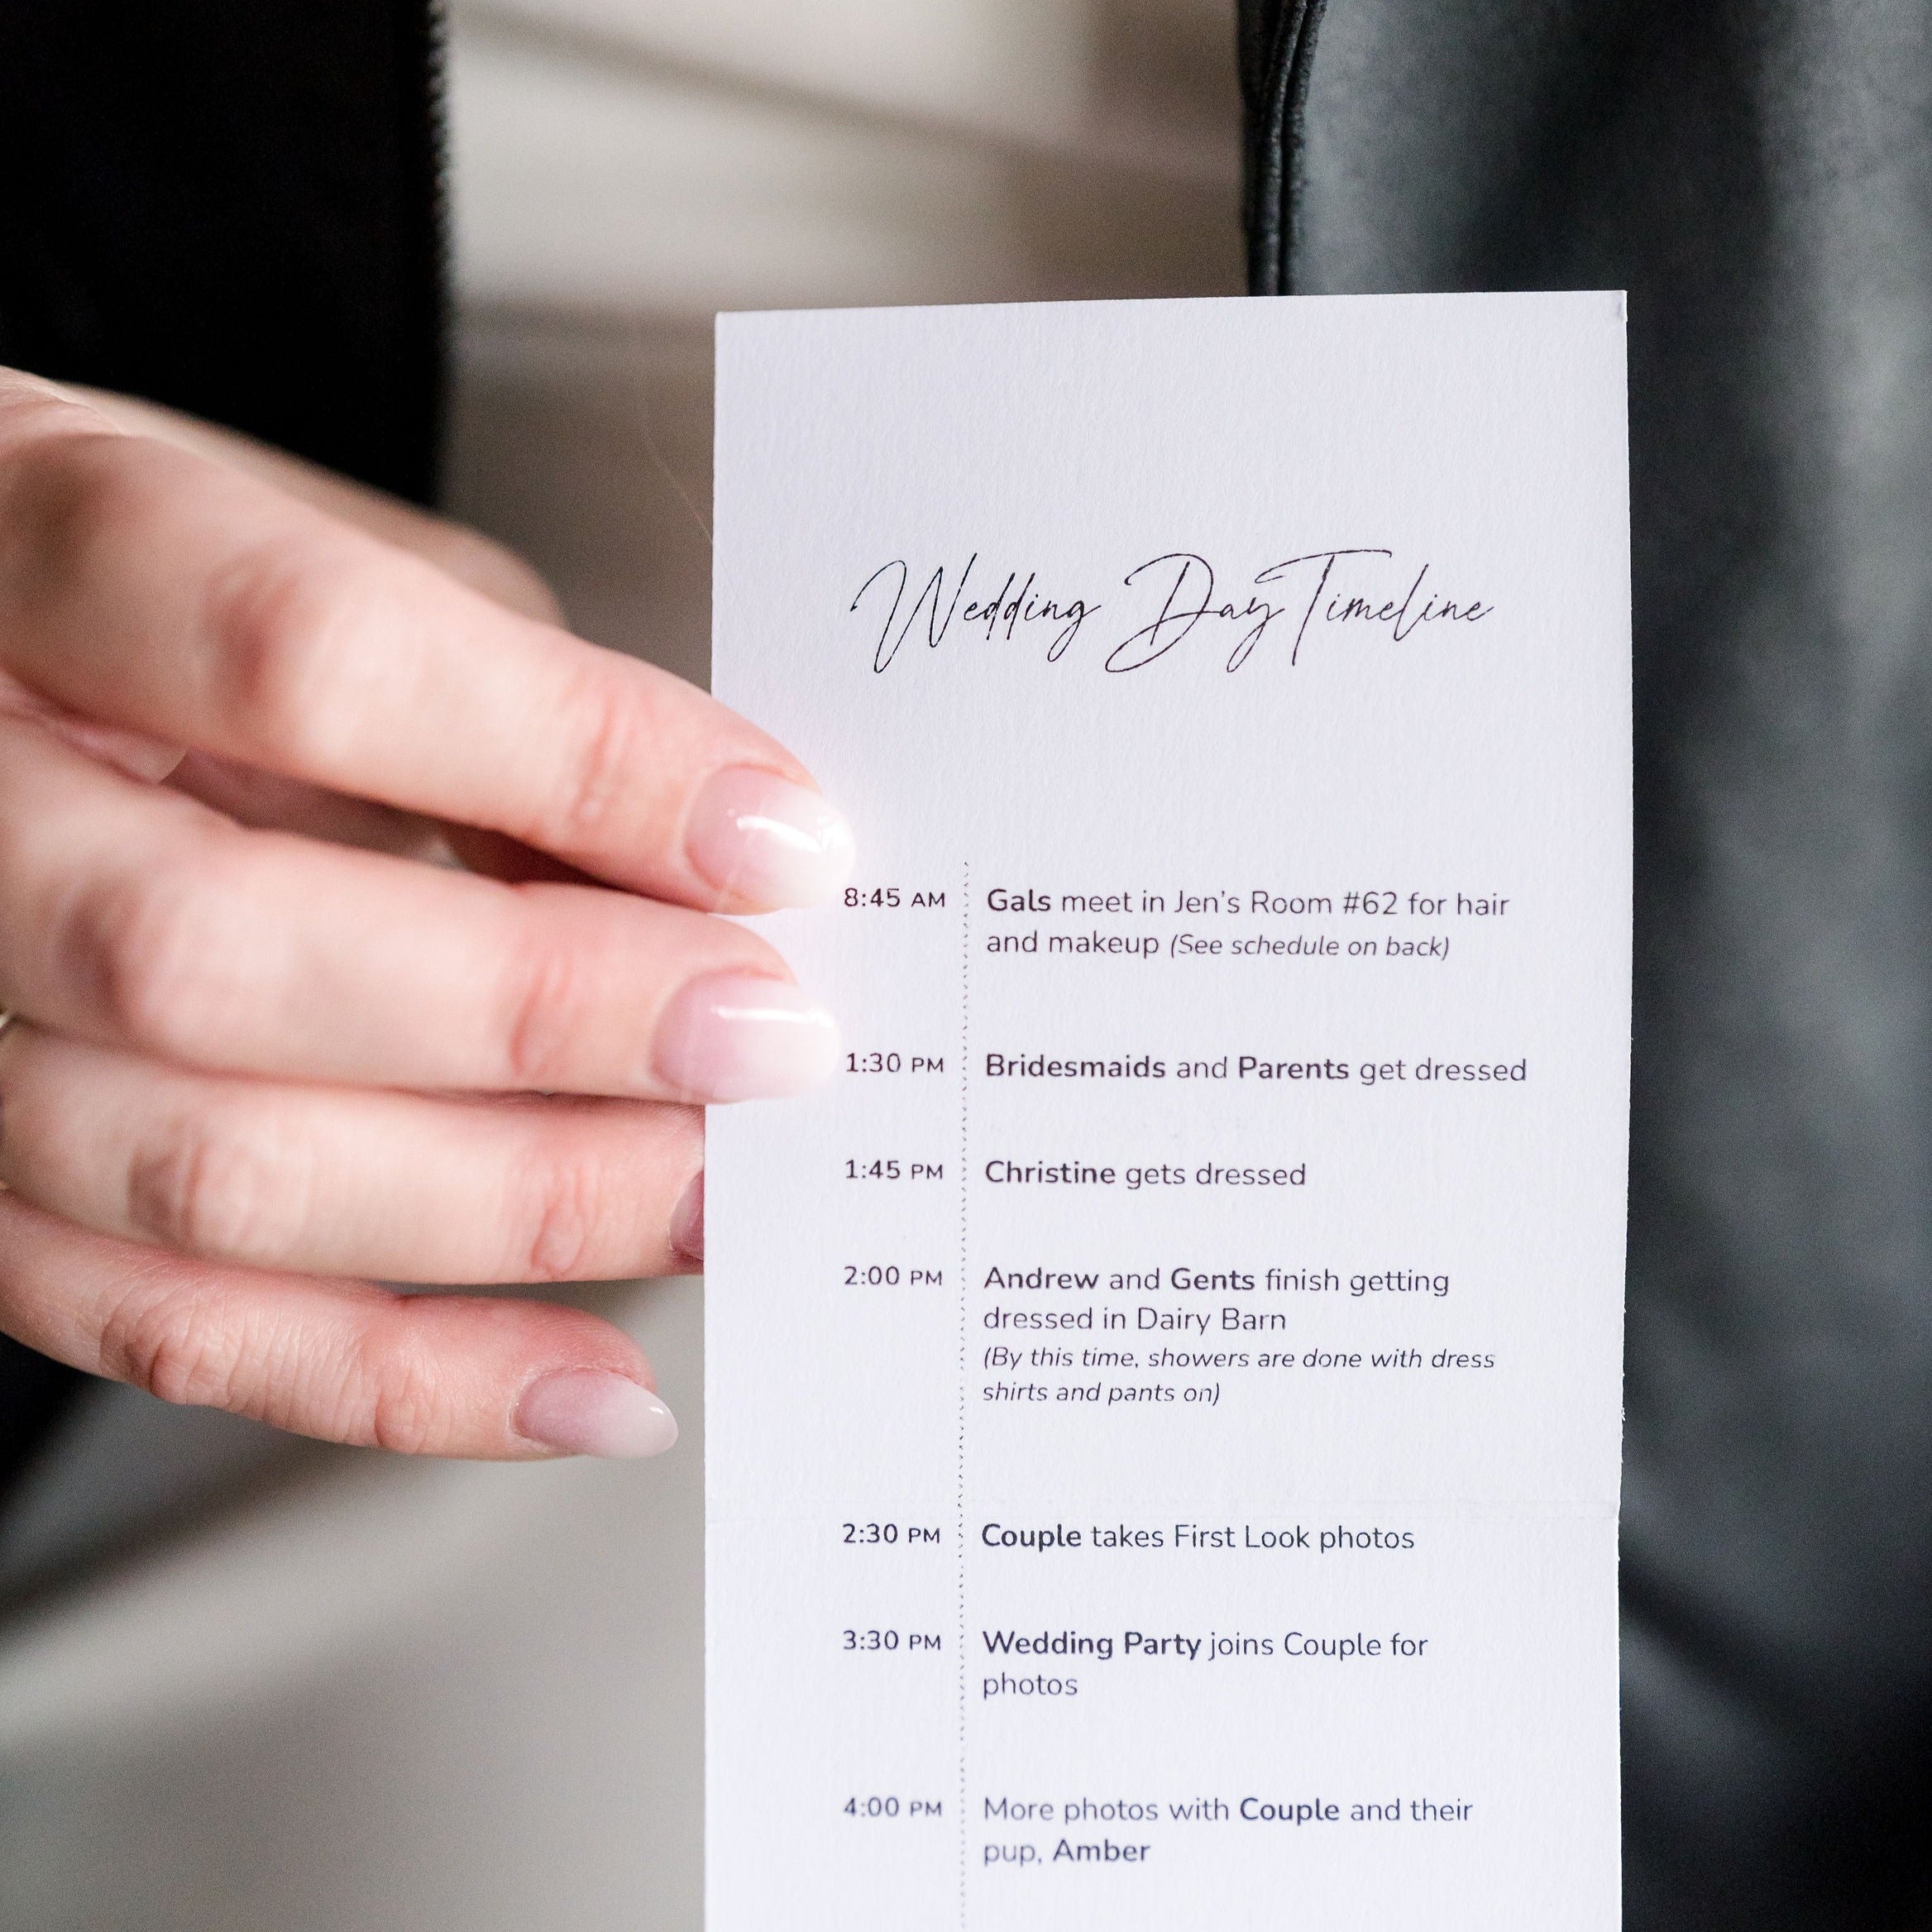 Wedding Day Timeline
8:45 AM Gals meet in Jen's Room #62 for hair
and makeup (See schedule on back)
1:30 PM Bridesmaids and Parents get dressed
1:45 PM Christine gets dressed
2:00 PM Andrew and Gents finish getting
dressed in Dairy Barn
(By this time, showers are done with dress
shirts and pants on)
2:30 PM Couple takes First Look photos
3:30 PM Wedding Party joins Couple for
photos
4:00 PM More photos with Couple and their
pup, Amber